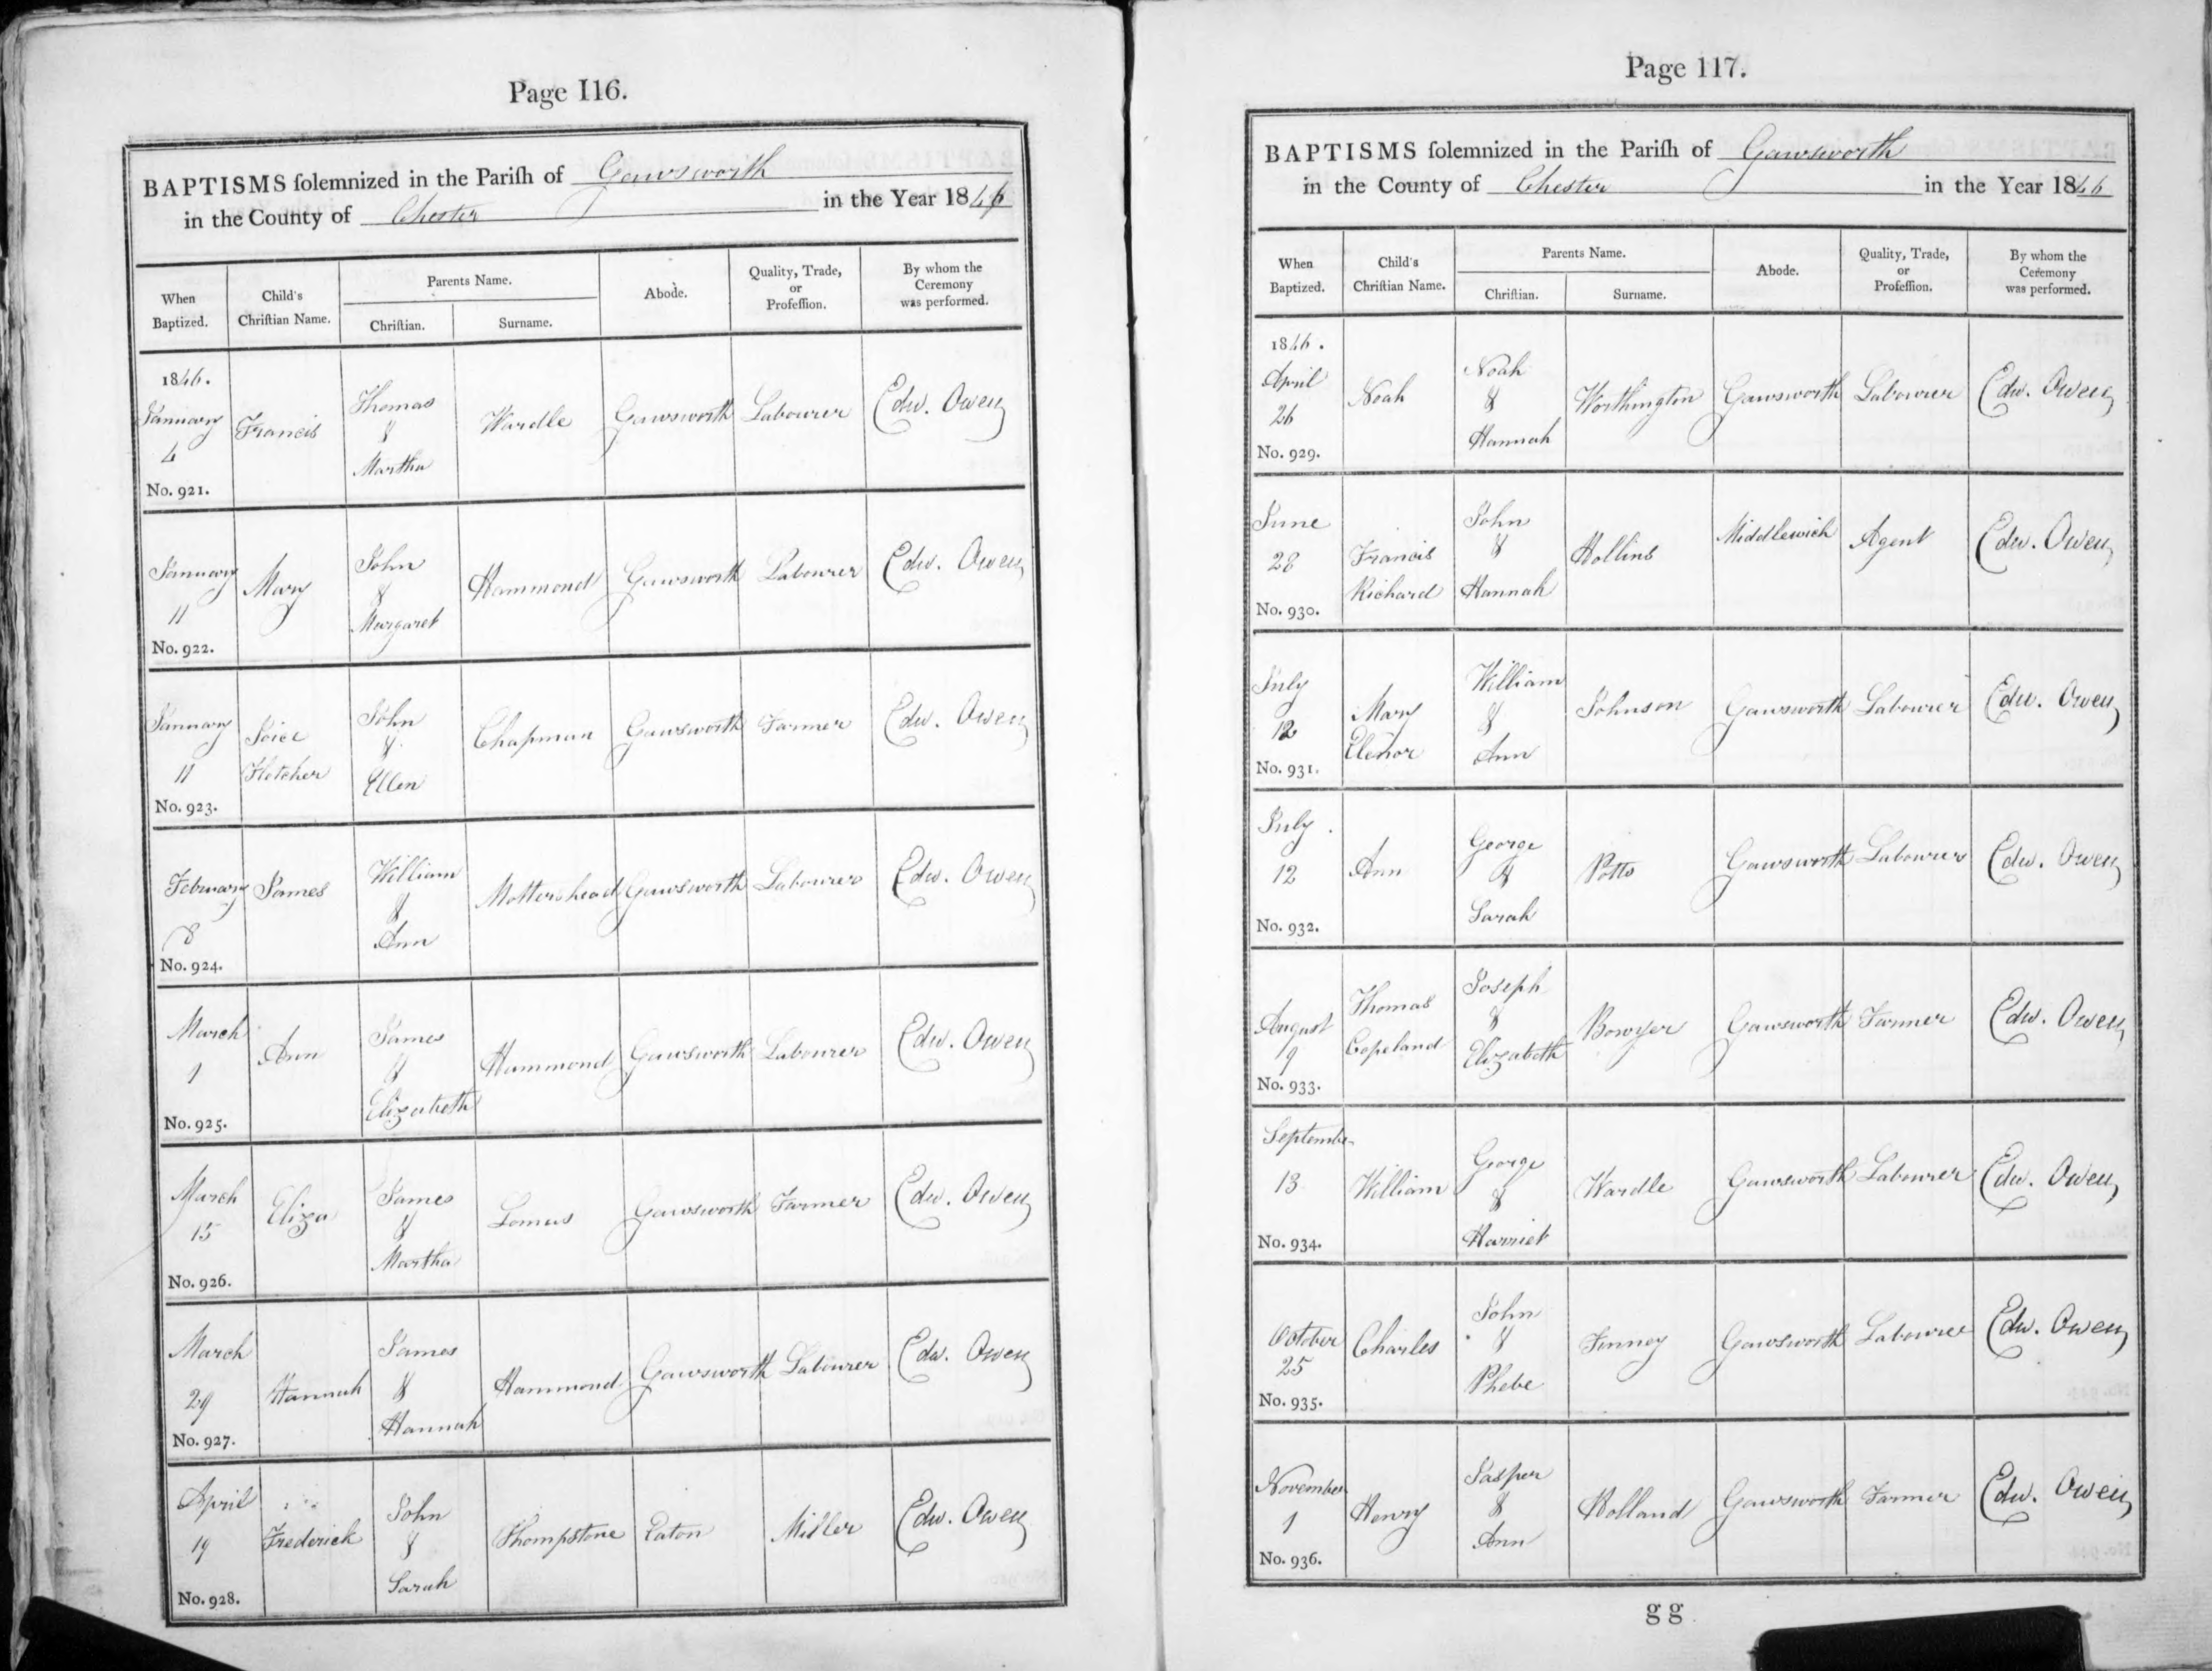 Page 116.
BAPTISMS ſolemnized in the Pariſh of Gawsworth
in the County of Chester in the Year 1846
When Baptized.
Child's Chriſtian Name.
Parents Name.
Chriſtian.
Surname.
Abode.
Quality, Trade, or Profeſſion.
By whom the Ceremony was performed.
1846. January 4 No. 921. Francis Thomas & Martha Wardle Gawsworth Labourer Edw. Owen
January 11 No. 922. Mary John & Margaret Hammond Gawsworth Labourer Edw. Owen
January 11 No. 923. Joice Fletcher John & Ellen Chapman Gawsworth Farmer Edw. Owen
February 8 No. 924. James William & Ann Mottershead Gawsworth Labourer Edw. Owen
March 1 No. 925. Ann James & Elizabeth Hammond Gawsworth Labourer Edw. Owen
March 15 No. 926. Eliza James & Martha Lomas Gawsworth Farmer Edw. Owen
March 29 No. 927. Hannah James & Hannah Hammond Gawsworth Labourer Edw. Owen
April 19 No. 928. Frederick John & Sarah Thompstone Eaton Miller Edw. Owen
Page 117.
BAPTISMS ſolemnized in the Pariſh of Gawsworth
in the County of Chester in the Year 1846
When Baptized.
Child's Chriſtian Name.
Parents Name.
Chriſtian.
Surname.
Abode.
Quality, Trade, or Profeſſion.
By whom the Ceremony was performed.
1846. April 26 No. 929. Noah Noah & Hannah Worthington Gawsworth Labourer Edw. Owen
June 28 No. 930. Francis Richard John & Hannah Hollins Middlewich Agent Edw. Owen
July 12 No. 931. Mary Elenor William & Ann Johnson Gawsworth Labourer Edw. Owen
July 12 No. 932. Ann George & Sarah Potts Gawsworth Labourer Edw. Owen
August 9 No. 933. Thomas Copeland Joseph & Elizabeth Bowyer Gawsworth Farmer Edw. Owen
September 13 No. 934. William George & Harriet Wardle Gawsworth Labourer Edw. Owen
October 25 No. 935. Charles John & Phebe Finney Gawsworth Labourer Edw. Owen
November 1 No. 936. Henry Jasper & Ann Holland Gawsworth Farmer Edw. Owen
gg